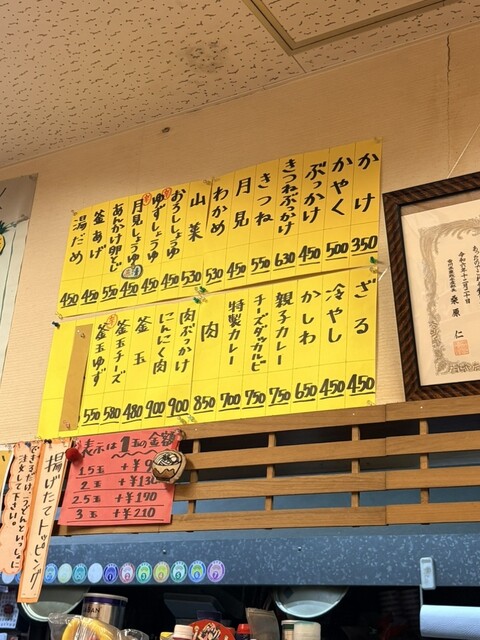 かけ 350
かやく 500
ぶっかけ 450
きつねぶっかけ 630
きつね 550
月見 450
わかめ 530
山菜 530
おろししょうゆ 450
ゆずしょうゆ 450
月見しょうゆ 450
あんかけ卵とじ 550
釜あげ 450
湯だめ 450
ざる 450
冷やし 450
かしわ 650
親子カレー 750
チーズダッカルビ 750
特製カレー 700
肉 850
肉ぶっかけ 900
にんにく肉 900
釜玉 480
釜玉チーズ 580
釜玉ゆず 550
表示は1玉の金額
1.5玉 +¥9
2玉 +¥130
2.5玉 +¥190
3玉 +¥210
揚げたてトッピング
できるだけ、うどんといっしょに
注文して下さい。
令和六年十二月二十日
桑原 仁